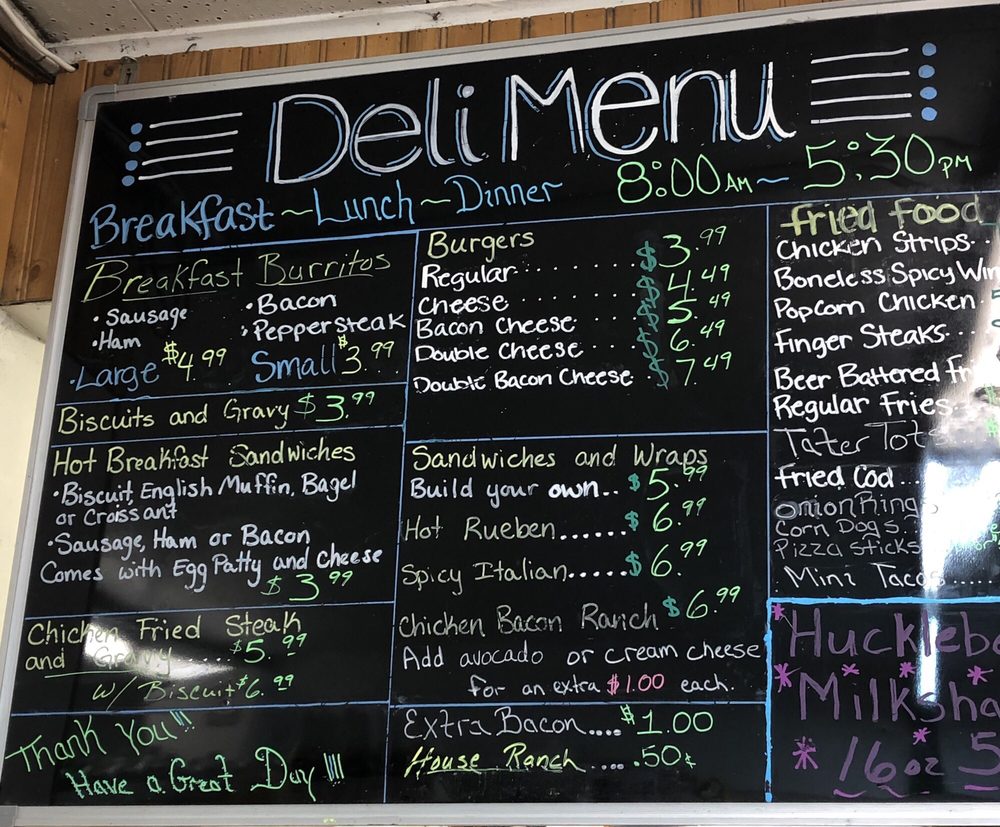 Deli Menu
8:00 AM ~ 5:30 PM
Breakfast ~ Lunch ~ Dinner
Breakfast Burritos
• Sausage • Bacon
• Ham • Pepper steak
• Large $4.99 Small $3.99
Biscuits and Gravy $3.99
Hot Breakfast Sandwiches
• Biscuit, English Muffin, Bagel
or Croissant
• Sausage, Ham or Bacon
Comes with Egg Patty and Cheese
$3.99
Chicken Fried Steak
and Gravy .... $5.99
w/ Biscuit $6.99
Thank You!!!
Have a Great Day !!!!
Burgers
Regular ....... $3.99
Cheese ....... $4.49
Bacon Cheese ..... $5.49
Double Cheese .... $6.49
Double Bacon Cheese . $7.49
Sandwiches and Wraps
Build your own.. $5.99
Hot Rueben...... $6.99
Spicy Italian...... $6.99
Chicken Bacon Ranch $6.99
Add avocado or cream cheese
for an extra $1.00 each.
Extra Bacon.... $1.00
House Ranch .... .50¢
Fried Food
Chicken Strips..
Boneless Spicy
Popcorn Chicken
Finger Steaks...
Beer Battered
Regular Fries
Tater Tots
Fried Cod...
Onion Rings
Corn Dogs
Pizza Sticks
Mini Tacos.....
16 oz